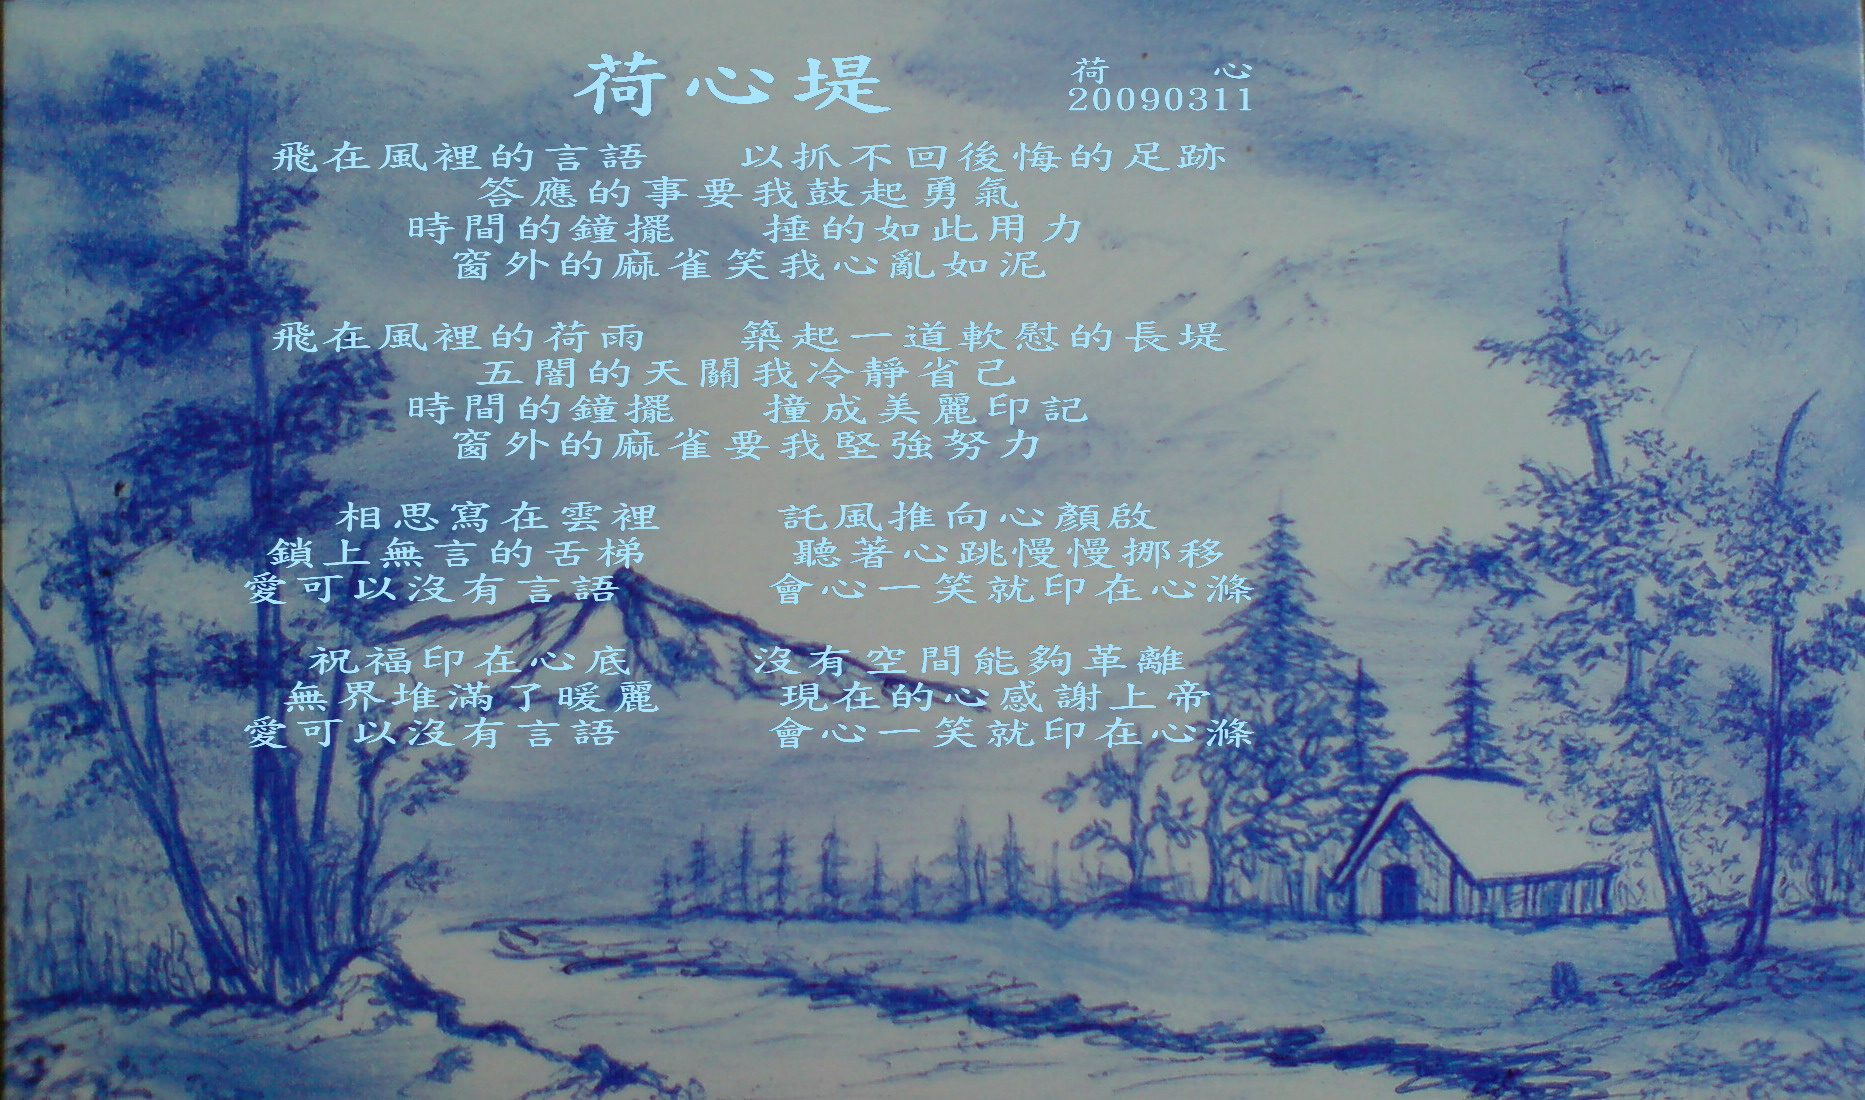 荷心堤
荷 心
20090311
飛在風裡的言語 以抓不回後悔的足跡
答應的事要我鼓起勇氣
時間的鐘擺 捶的如此用力
窗外的麻雀笑我心亂如泥
飛在風裡的荷雨 築起一道軟慰的長堤
五闇的天關我冷靜省己
時間的鐘擺 撞成美麗印記
窗外的麻雀要我堅強努力
相思寫在雲裡 託風推向心顏啟
鎖上無言的舌梯 聽著心跳慢慢挪移
愛可以沒有言語 會心一笑就印在心滌
祝福印在心底 沒有空間能夠革離
無界堆滿了暖麗 現在的心感謝上帝
愛可以沒有言語 會心一笑就印在心滌